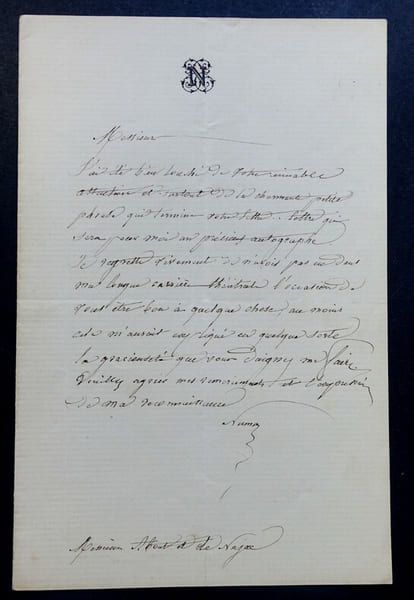 N
Monsieur
J'ai été bien touché de votre aimable
attention et surtout de la charmante petite
phrase qui termine votre lettre, lettre qui
sera pour moi un précieux autographe
Je regrette vivement de n'avoir pas eu dans
ma longue carrière théâtrale l'occasion de
vous être bon à quelque chose, au moins
cela m'aurait expliqué en quelque sorte
la gracieuseté que vous daignez me faire
Veuillez agréer mes remerciments et l'expression
de ma reconnaissance
Numa
Monsieur de